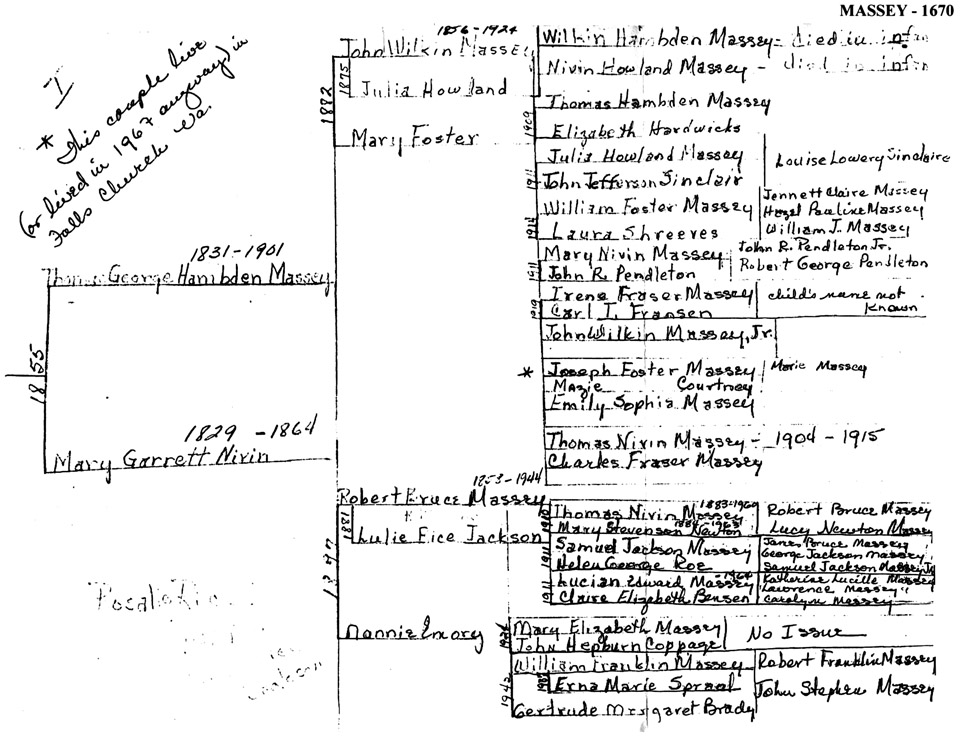 MASSEY - 1670
I
* This couple live
(or lived in 1967 anyway) in
Falls Church Va.
1855
1831-1901
Thomas George Hambden Massey
1829 - 1864
Mary Garrett Nivin
1856-1924
John Wilkin Massey
1875
Julia Howland
1882
Mary Foster
Wilkin Hambden Massey - died in
Nivin Howland Massey - died in
Thomas Hambden Massey
1909
Elizabeth Hardwicks
Julia Howland Massey
1911
John Jefferson Sinclair
Louise Lowery Sinclaire
William Foster Massey
1914
Laura Shreeves
Jennett Claire Massey
Hazel Pauline Massey
William J. Massey
Mary Nivin Massey
1911
John R. Pendleton
John R. Pendleton Jr.
Robert George Pendleton
Irene Fraser Massey
Carl I. Fransen
child's name not
Known
John Wilkin Massey, Jr.
* Joseph Foster Massey
Mazie Courtney
Marie Massey
Emily Sophia Massey
Thomas Nivin Massey - 1904 - 1915
Charles Fraser Massey
1853-1944
Robert Bruce Massey
1881
Lulie Fice Jackson
Nannie Emory
1883-1960
Thomas Nivin Massey
Mary Stevenson Newton
Robert Bruce Massey
Lucy Newton Massey
Samuel Jackson Massey
1911
Helen George Roe
Jane Bruce Massey
George Jackson Massey
Samuel Jackson Massey, Jr
Lucian Edward Massey
1911
Claire Elizabeth Bensen
Katherine Lucille Massey
Lawrence Massey
Carolyn Massey
Mary Elizabeth Massey
John Hepburn Coppage
No Issue
William Franklin Massey
Erna Marie
1942
Gertrude Margaret Brady
Robert Franklin Massey
John Stephen Massey
Jackson